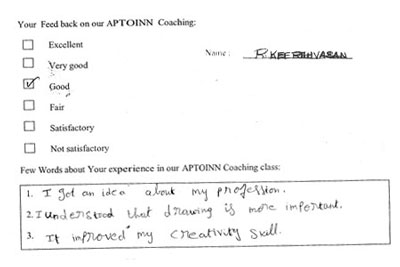 Your Feed back on our APTOINN Coaching:
Excellent
Name :
Very good
Good
Fair
Satisfactory
Not satisfactory
Few Words about Your experience in our APTOINN Coaching class:
1. I got an idea about my profession.
2. I understood that drawing is more important.
3. It improved my creativity skill.